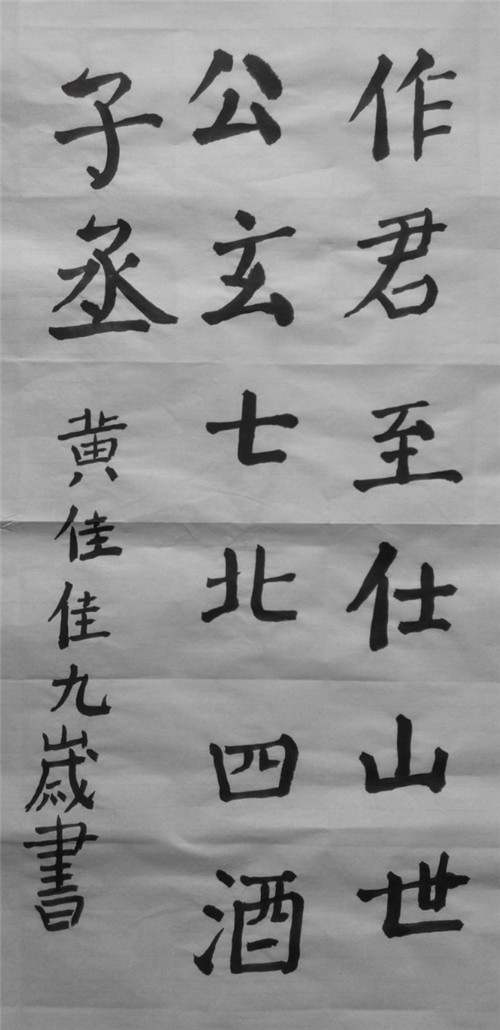 作君至仕山世
公玄七北四酒
子丞
黄佳佳九歲書